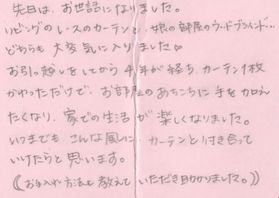 先日は、お世話になりました。
リビングのレースのカーテンと 娘の部屋のウッドブラインド…
どちらも 大変 気に入りました♡
お引っ越しをしてから 4年が経ち、カーテン1枚
かわっただけで、お部屋のあちこちに 手を加え
たくなり、家での生活が 楽しくなりました。
いつまでも こんな風に カーテンと付き合って
いけたらと 思います。
((お手入れ方法も 教えて いただき助かりました。))